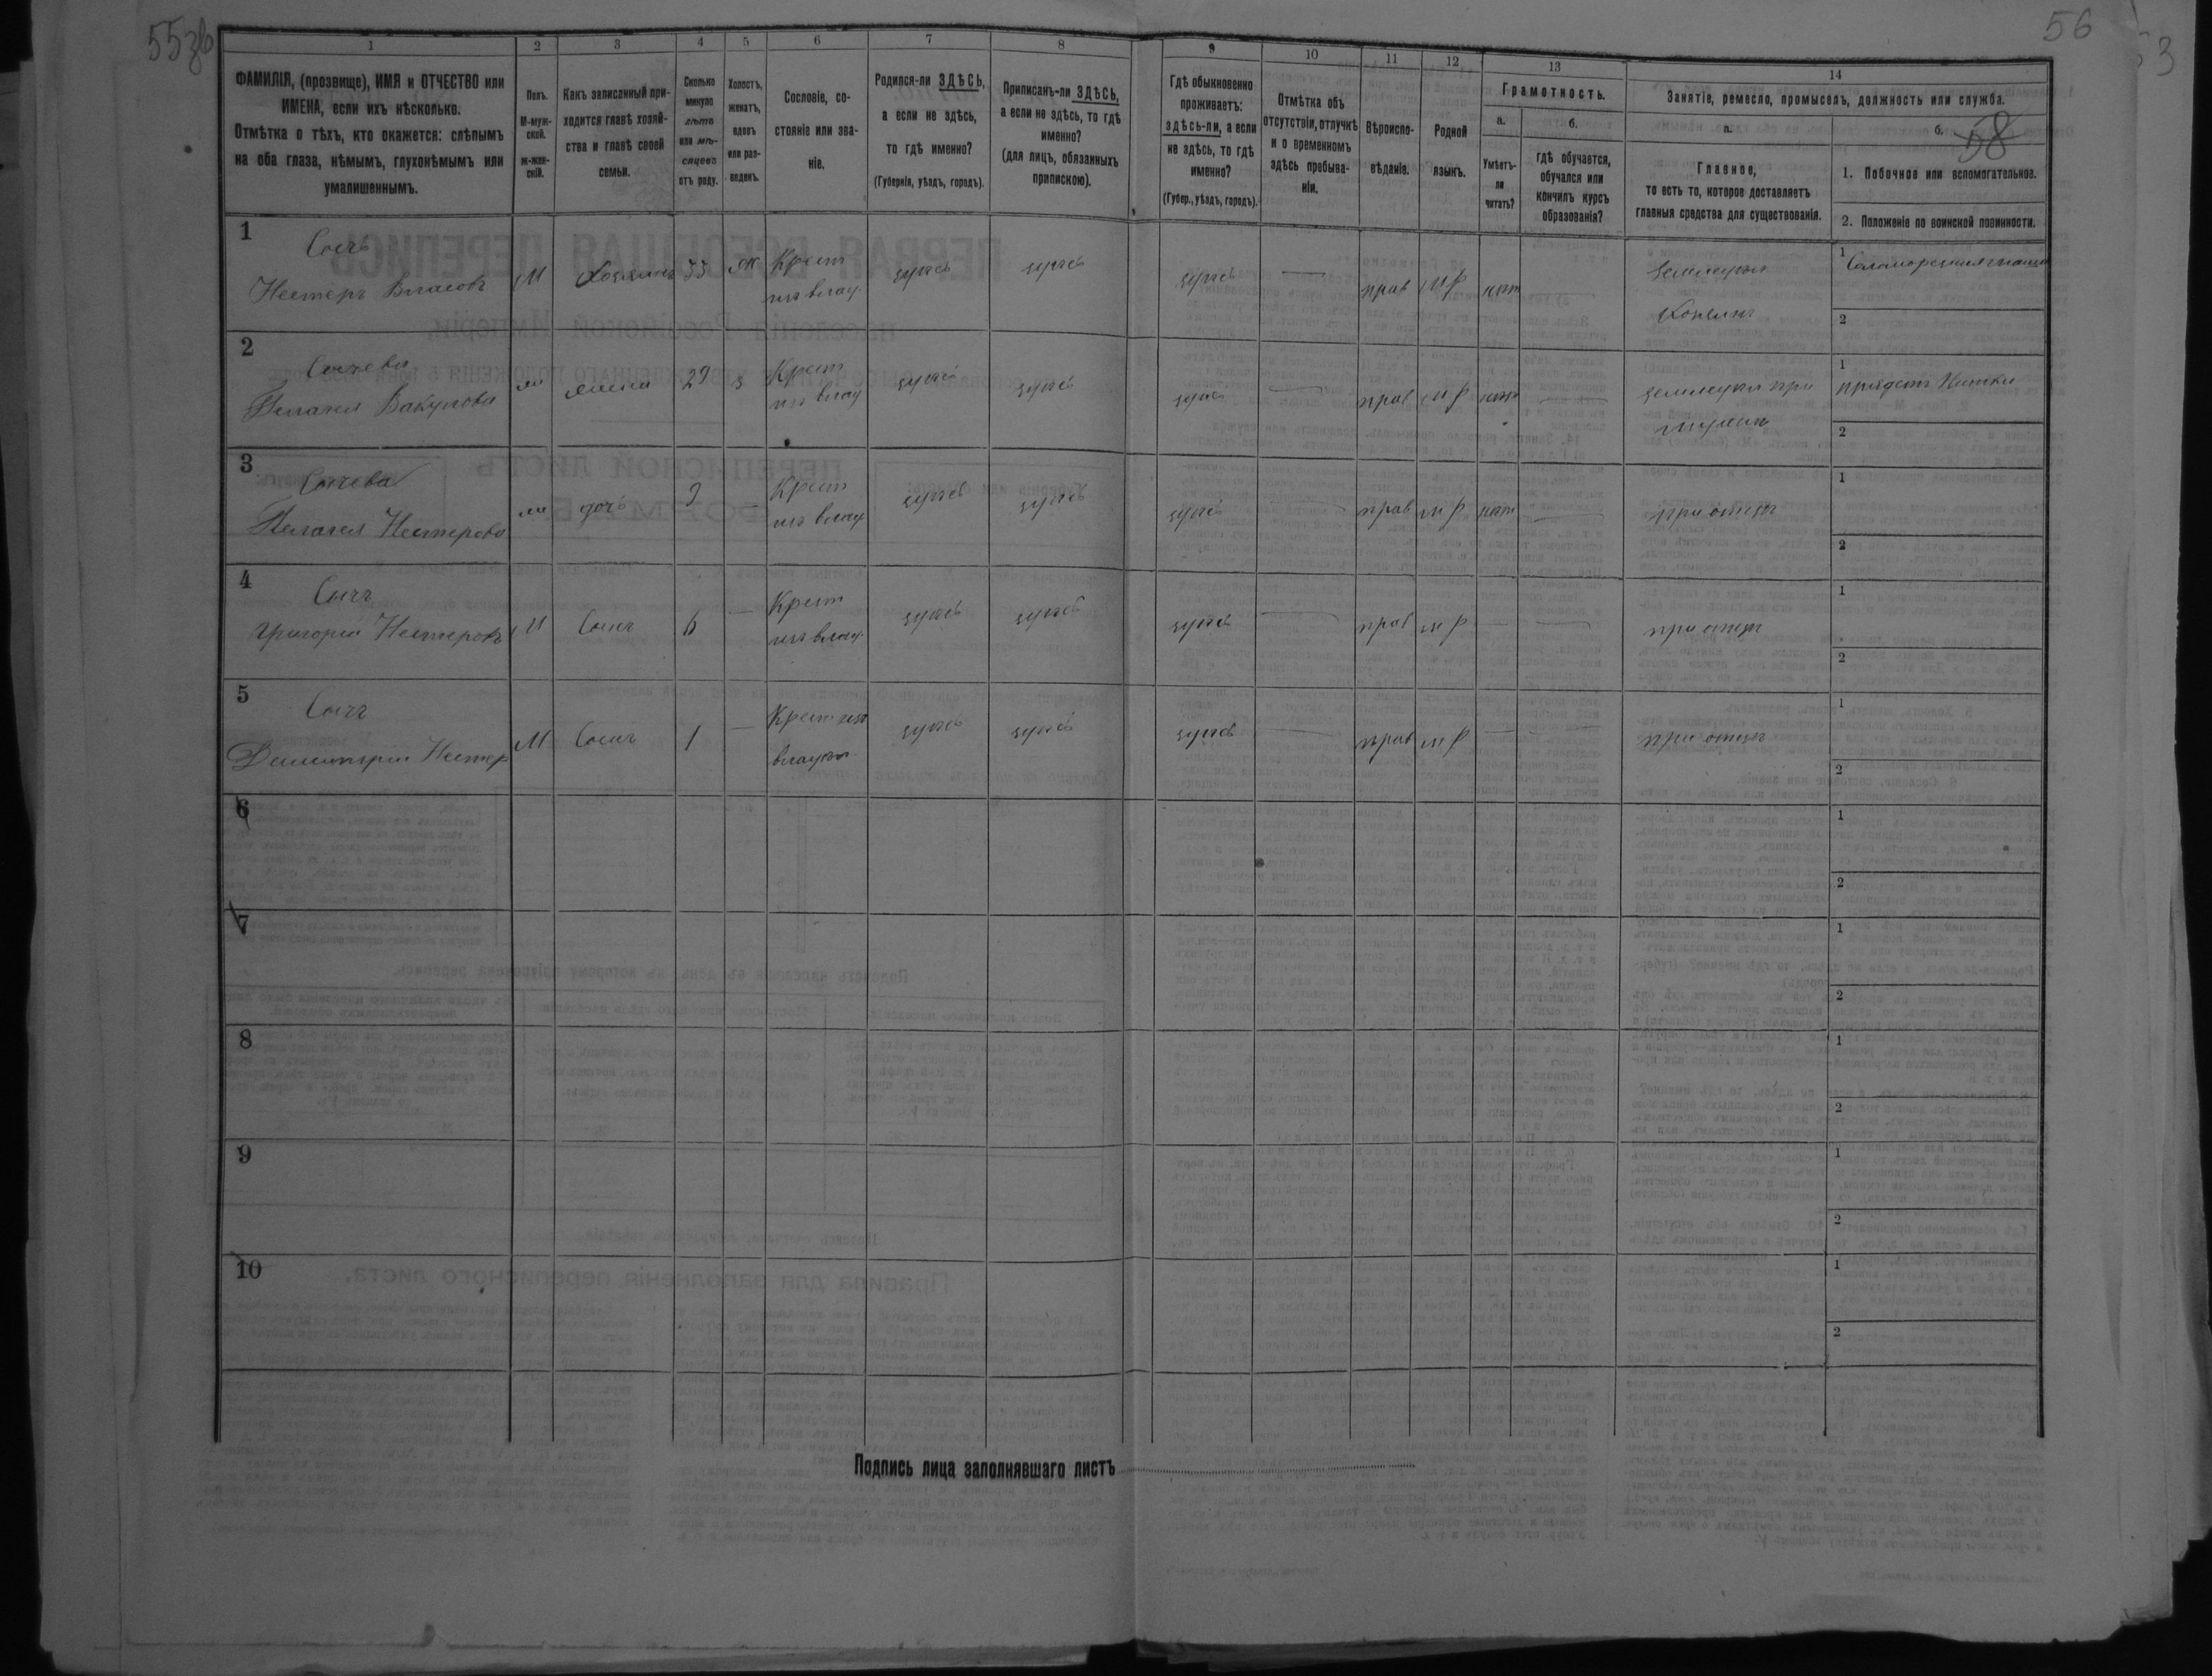 55зв
56
53
58
1
2
3
4
5
6
7
8
9
10
11
12
13
14
ФАМИЛІЯ, (прозвище), ИМЯ и ОТЧЕСТВО или
ИМЕНА, если ихъ нѣсколько.
Отмѣтка о тѣхъ, кто окажется: слѣпымъ
на оба глаза, нѣмымъ, глухонѣмымъ или
умалишеннымъ.
Полъ.
М-муж-
ской.
ж-жен-
скій.
Какъ записанный при-
ходится главѣ хозяй-
ства и главѣ своей
семьи.
Сколько
минуло
лѣтъ
или мѣ-
сяцевъ
отъ роду.
Холостъ,
женатъ,
вдовъ
или раз-
веденъ.
Сословіе, со-
стояніе или зва-
ніе.
Родился-ли ЗДѢСЬ,
а если не здѣсь,
то гдѣ именно?
(Губернія, уѣздъ, городъ).
Приписанъ-ли ЗДѢСЬ,
а если не здѣсь, то гдѣ
именно?
(для лицъ, обязанныхъ
припискою).
Гдѣ обыкновенно
проживаетъ:
здѣсь-ли, а если
не здѣсь, то гдѣ
именно?
(Губер., уѣздъ, городъ).
Отмѣтка объ
отсутствіи, отлучкѣ
и о временномъ
здѣсь пребыва-
ніи.
Вѣроиспо-
вѣданіе.
Родной
языкъ.
Грамотность.
а.
Умѣетъ-
ли
читать?
б.
гдѣ обучается,
обучался или
кончилъ курсъ
образованія?
Занятіе, ремесло, промыселъ, должность или служба.
а.
Главное,
то есть то, которое доставляетъ
главныя средства для существованія.
б.
1. Побочное или вспомогательное.
2. Положеніе по воинской повинности.
1
Сычъ
Нестеръ Власовъ
М
Хозяинъ
33
ж
Крест
из влад.
здѣсь
здѣсь
здѣсь
—
прав
м р
нѣт
—
Земледѣл
Хозяинъ
1
2
2
Сычева
Пелагея Вакулова
ж
жена
29
з
Крест
из влад
здѣсь
здѣсь
здѣсь
—
прав
м р
нѣт
—
земледѣл при
мужѣ
1 прядетъ Нитки
2
3
Сычева
Пелагея Нестерова
ж
дочь
9
—
Крест
из влад
здѣсь
здѣсь
здѣсь
—
прав
м р
нѣт
—
при отцѣ
1
2
4
Сычъ
Григорій Нестеровъ
М
Сынъ
6
—
Крест
из влад.
здѣсь
здѣсь
здѣсь
—
прав
м р
—
—
при отцѣ
1
2
5
Сычъ
Димитрій Нестер
М
Сынъ
1
—
Крест из
влад.
здѣсь
здѣсь
здѣсь
—
прав
м р
—
—
при отцѣ
1
2
6
1
2
7
1
2
8
1
2
9
1
2
10
1
2
Подпись лица заполнявшаго листъ